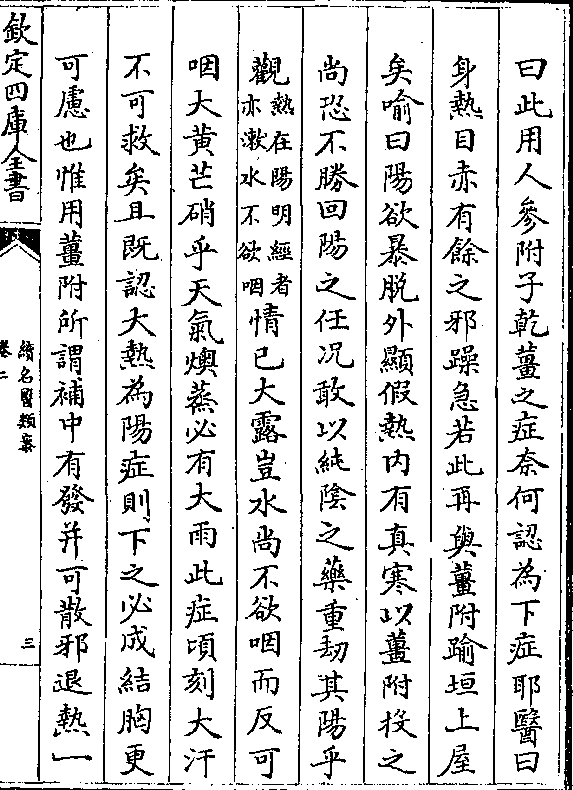 曰此用人參附子乾薑之症奈何認為下症耶醫曰
身熱目赤有餘之邪躁急若此再與薑附踰垣上屋
矣喻曰陽欲暴脱外顯假熱内有真寒以薑附投之
尚恐不勝回陽之任况敢以純陰之藥重刼其陽乎
觀熱在陽明經者亦漱水不欲咽情已大露豈水尚不欲咽而反可
咽大黄芒硝乎天氣燠蒸必有大雨此症頃刻大汗
不可救矣且既認大熱為陽症則下之必成結胸更
可慮也惟用薑附所謂補中有發并可散邪退熱一
欽定四庫全書
續名醫類案
卷二
三